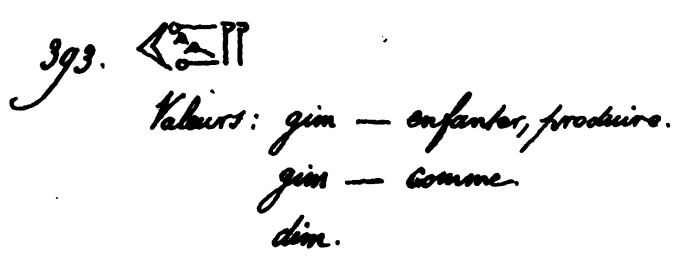 393.
Valeurs: gim — enfanter, produire.
gim — comme.
dim.